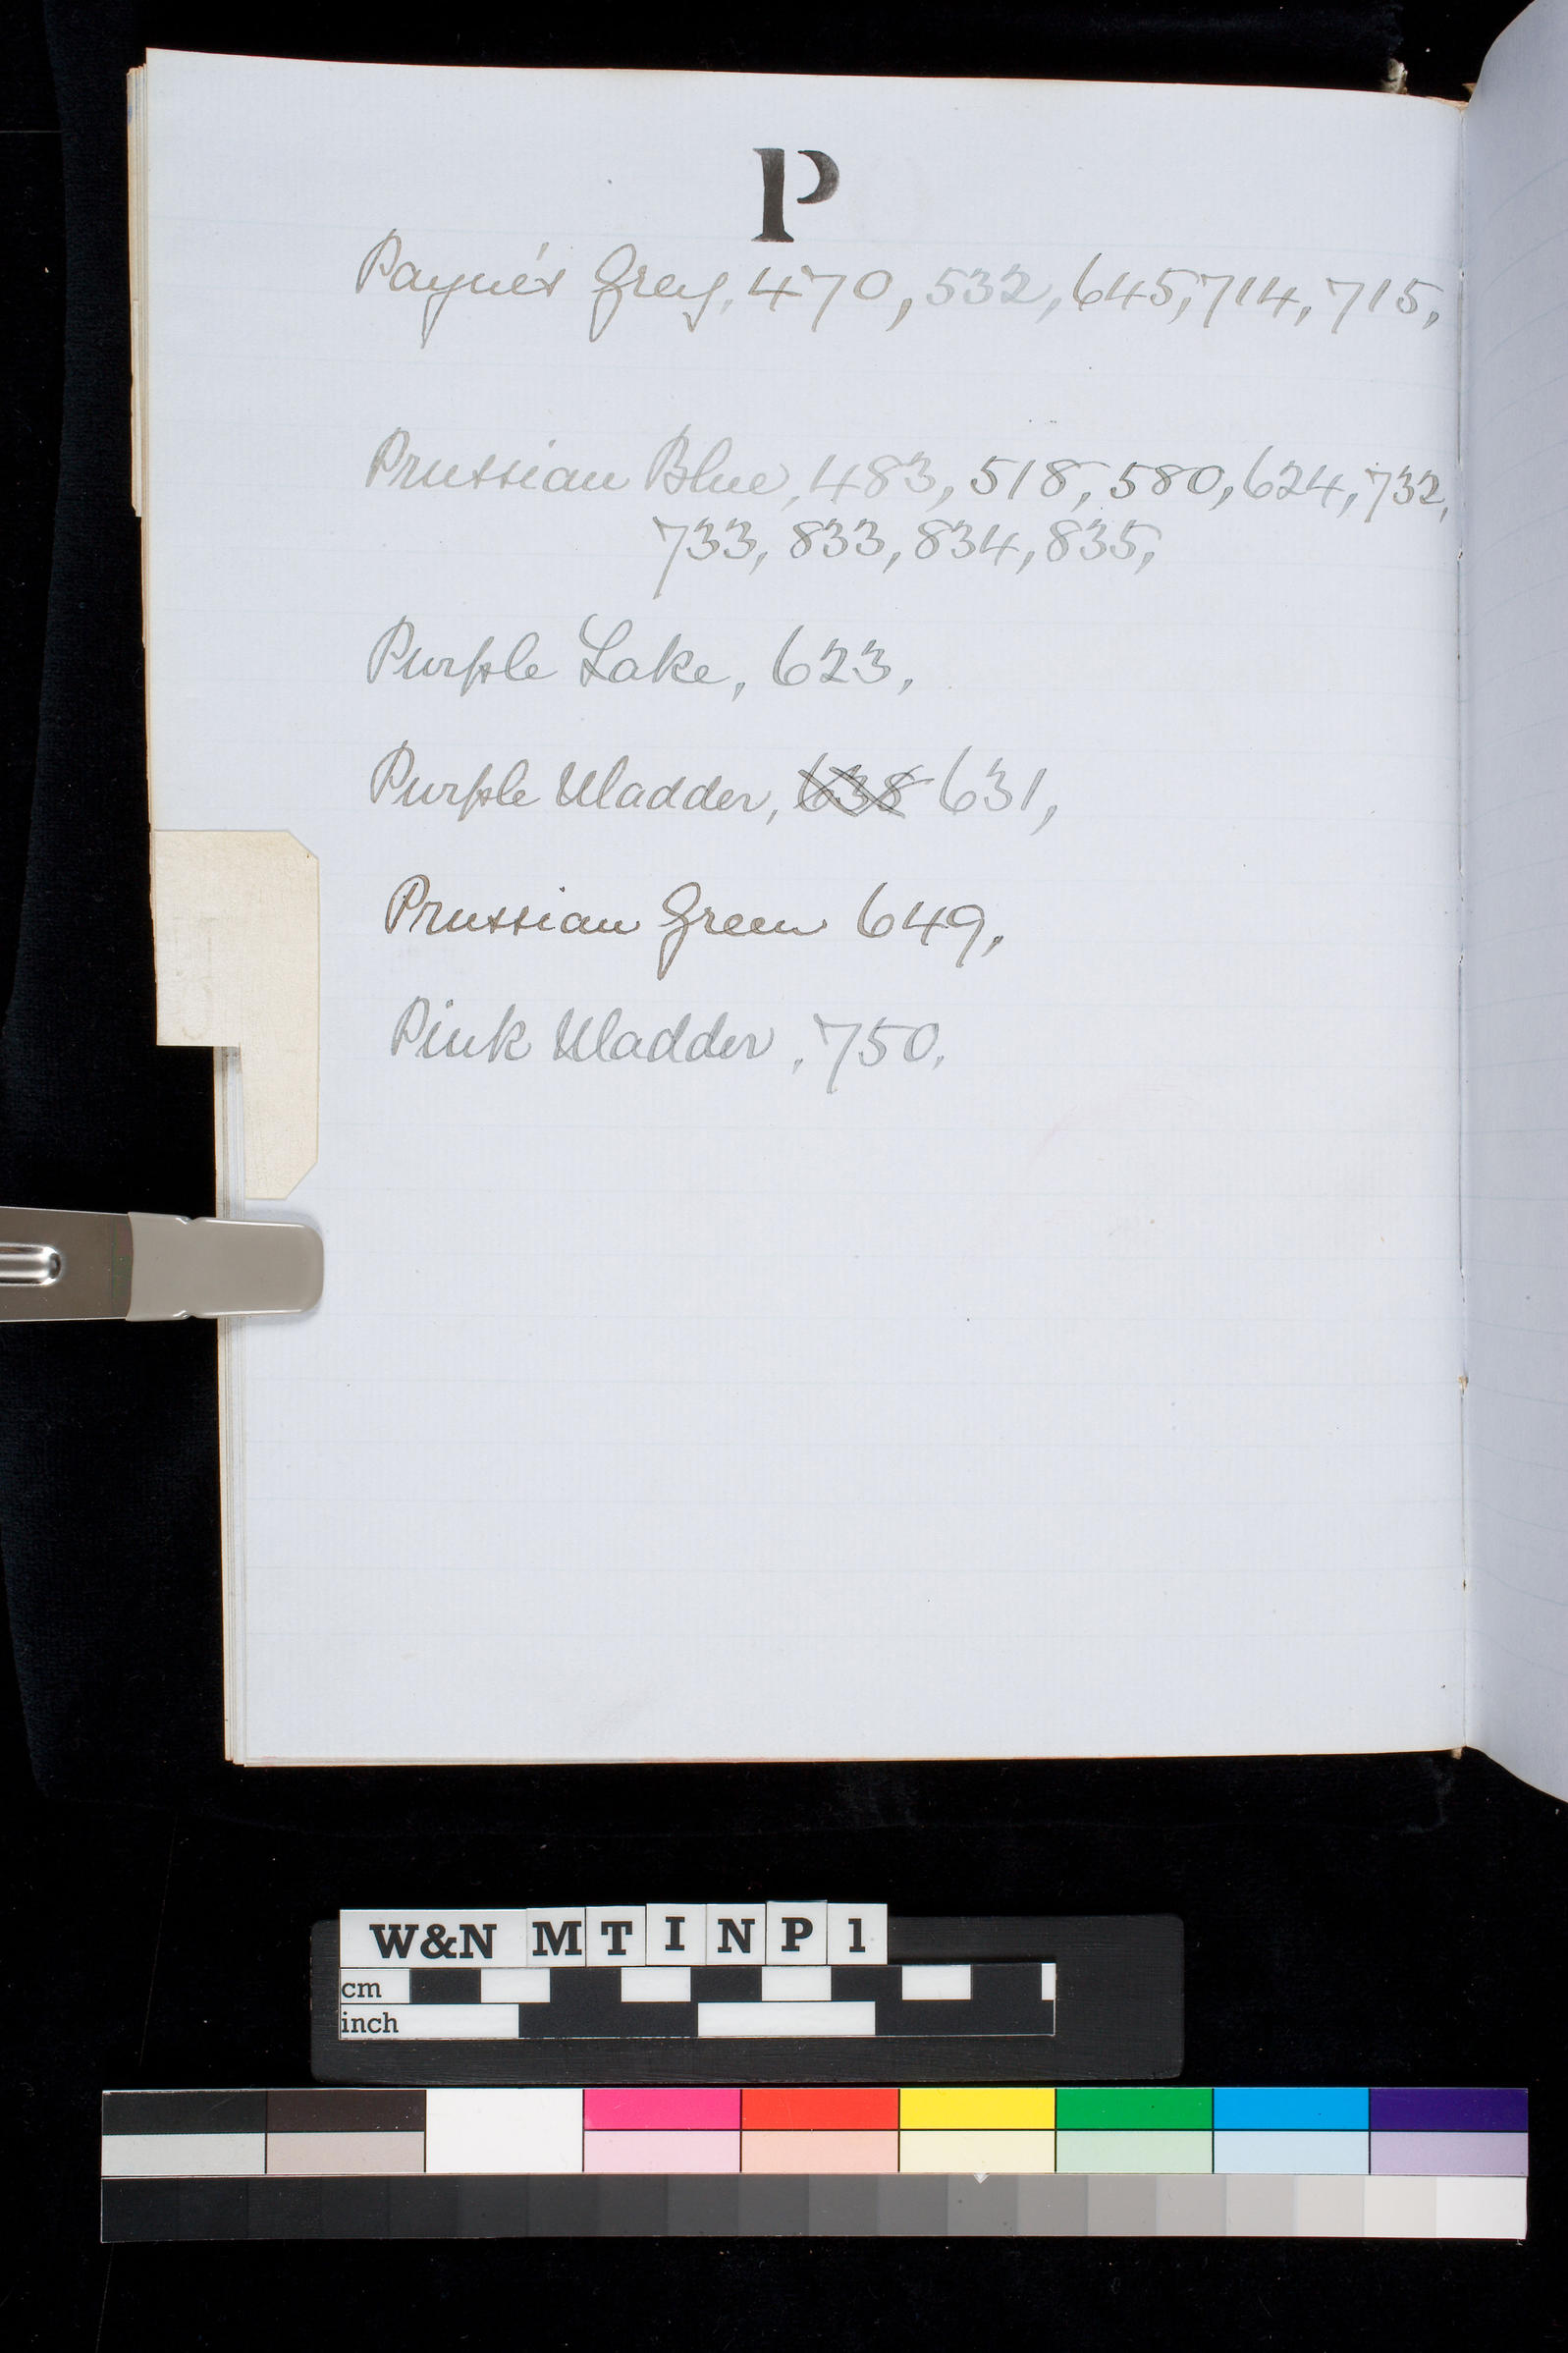 P
Payne's Grey, 470, 532, 645, 714, 715,
Prussian Blue, 483, 518, 580, 624, 732,
733, 833, 834, 835,
Purple Lake, 623,
Purple Madder, 638 631,
Prussian Green 649,
Pink Madder, 750,
W&N M T I N P 1
cm
inch